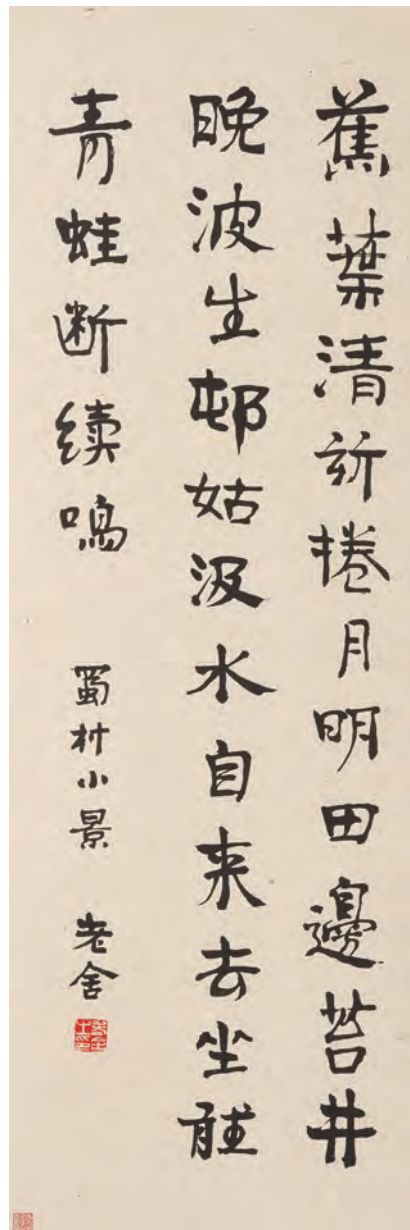 蕉葉清新捲月明田邊苔井
晚波生邨姑汲水自来去坐聽
青蛙断续鸣
蜀村小景 老舍